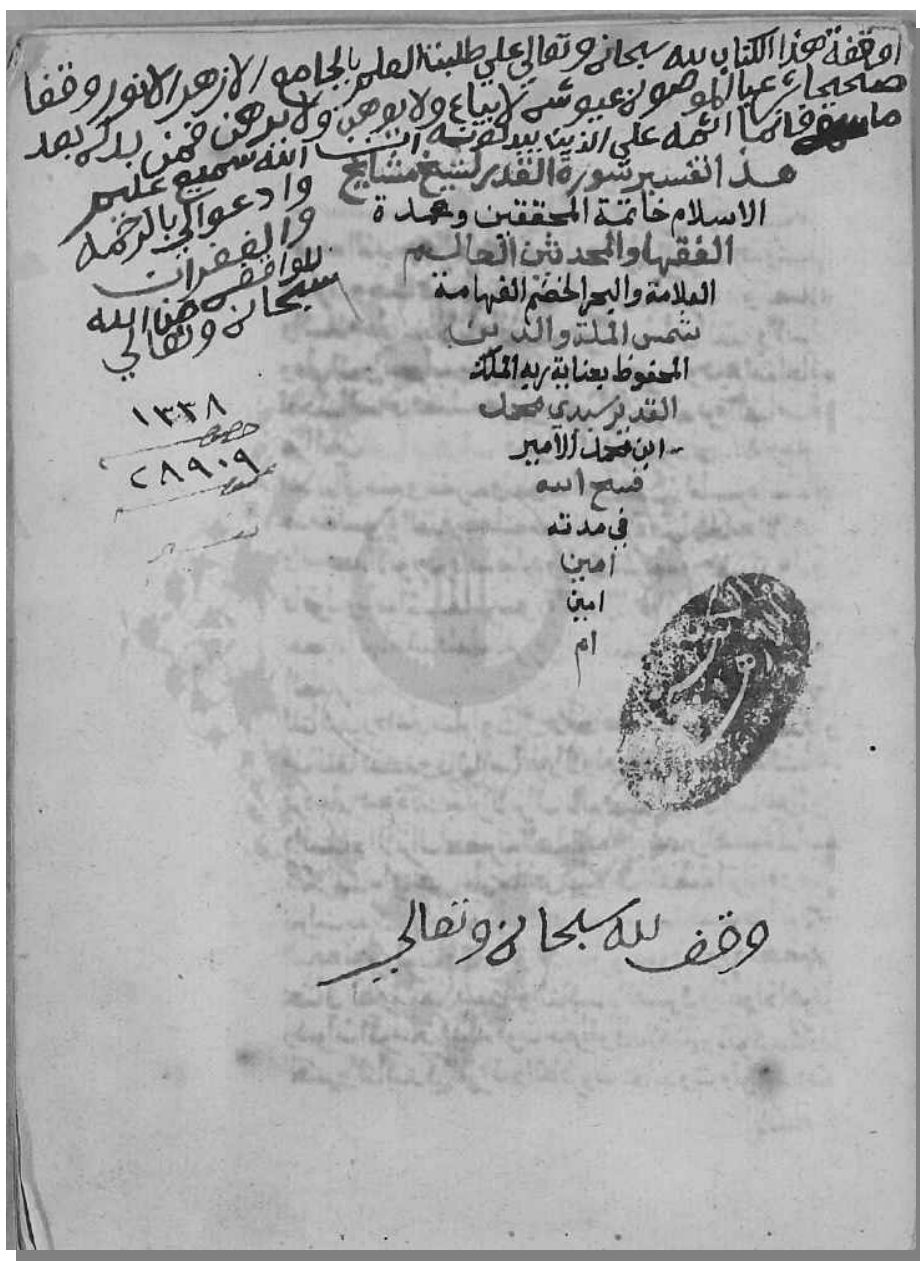 اوقفة هذا الكتاب لله سبحانه وتعالي علي طلبة العلم بالجامع الازهر الانور وقفا
صحيحا شرعيا لا يباع ولا يوهن ولا يرهن فمن بدله بعد
ما سمعه فانما اثمه علي الذين يبدلونه ان الله سميع عليم
وادعوا لي بالرحمه
والغفران
للواقف من الله
سبحانه وتعالي
١٣٣٨
خصوصي
٢٨٩٠٩
هذا تفسير سورة القدر لشيخ مشايخ
الاسلام خاتمة المحققين وعمدة
الفقها والمحدثين العالم
العلامة والبحر الخضم الفهامة
شمس الملة والدين
المحفوظ بعناية ربه الملك
القدير سيدي محمد
ابن محمد الامير
فسح الله
في مدته
امين
امين
ام
وقف لله سبحانه وتعالي